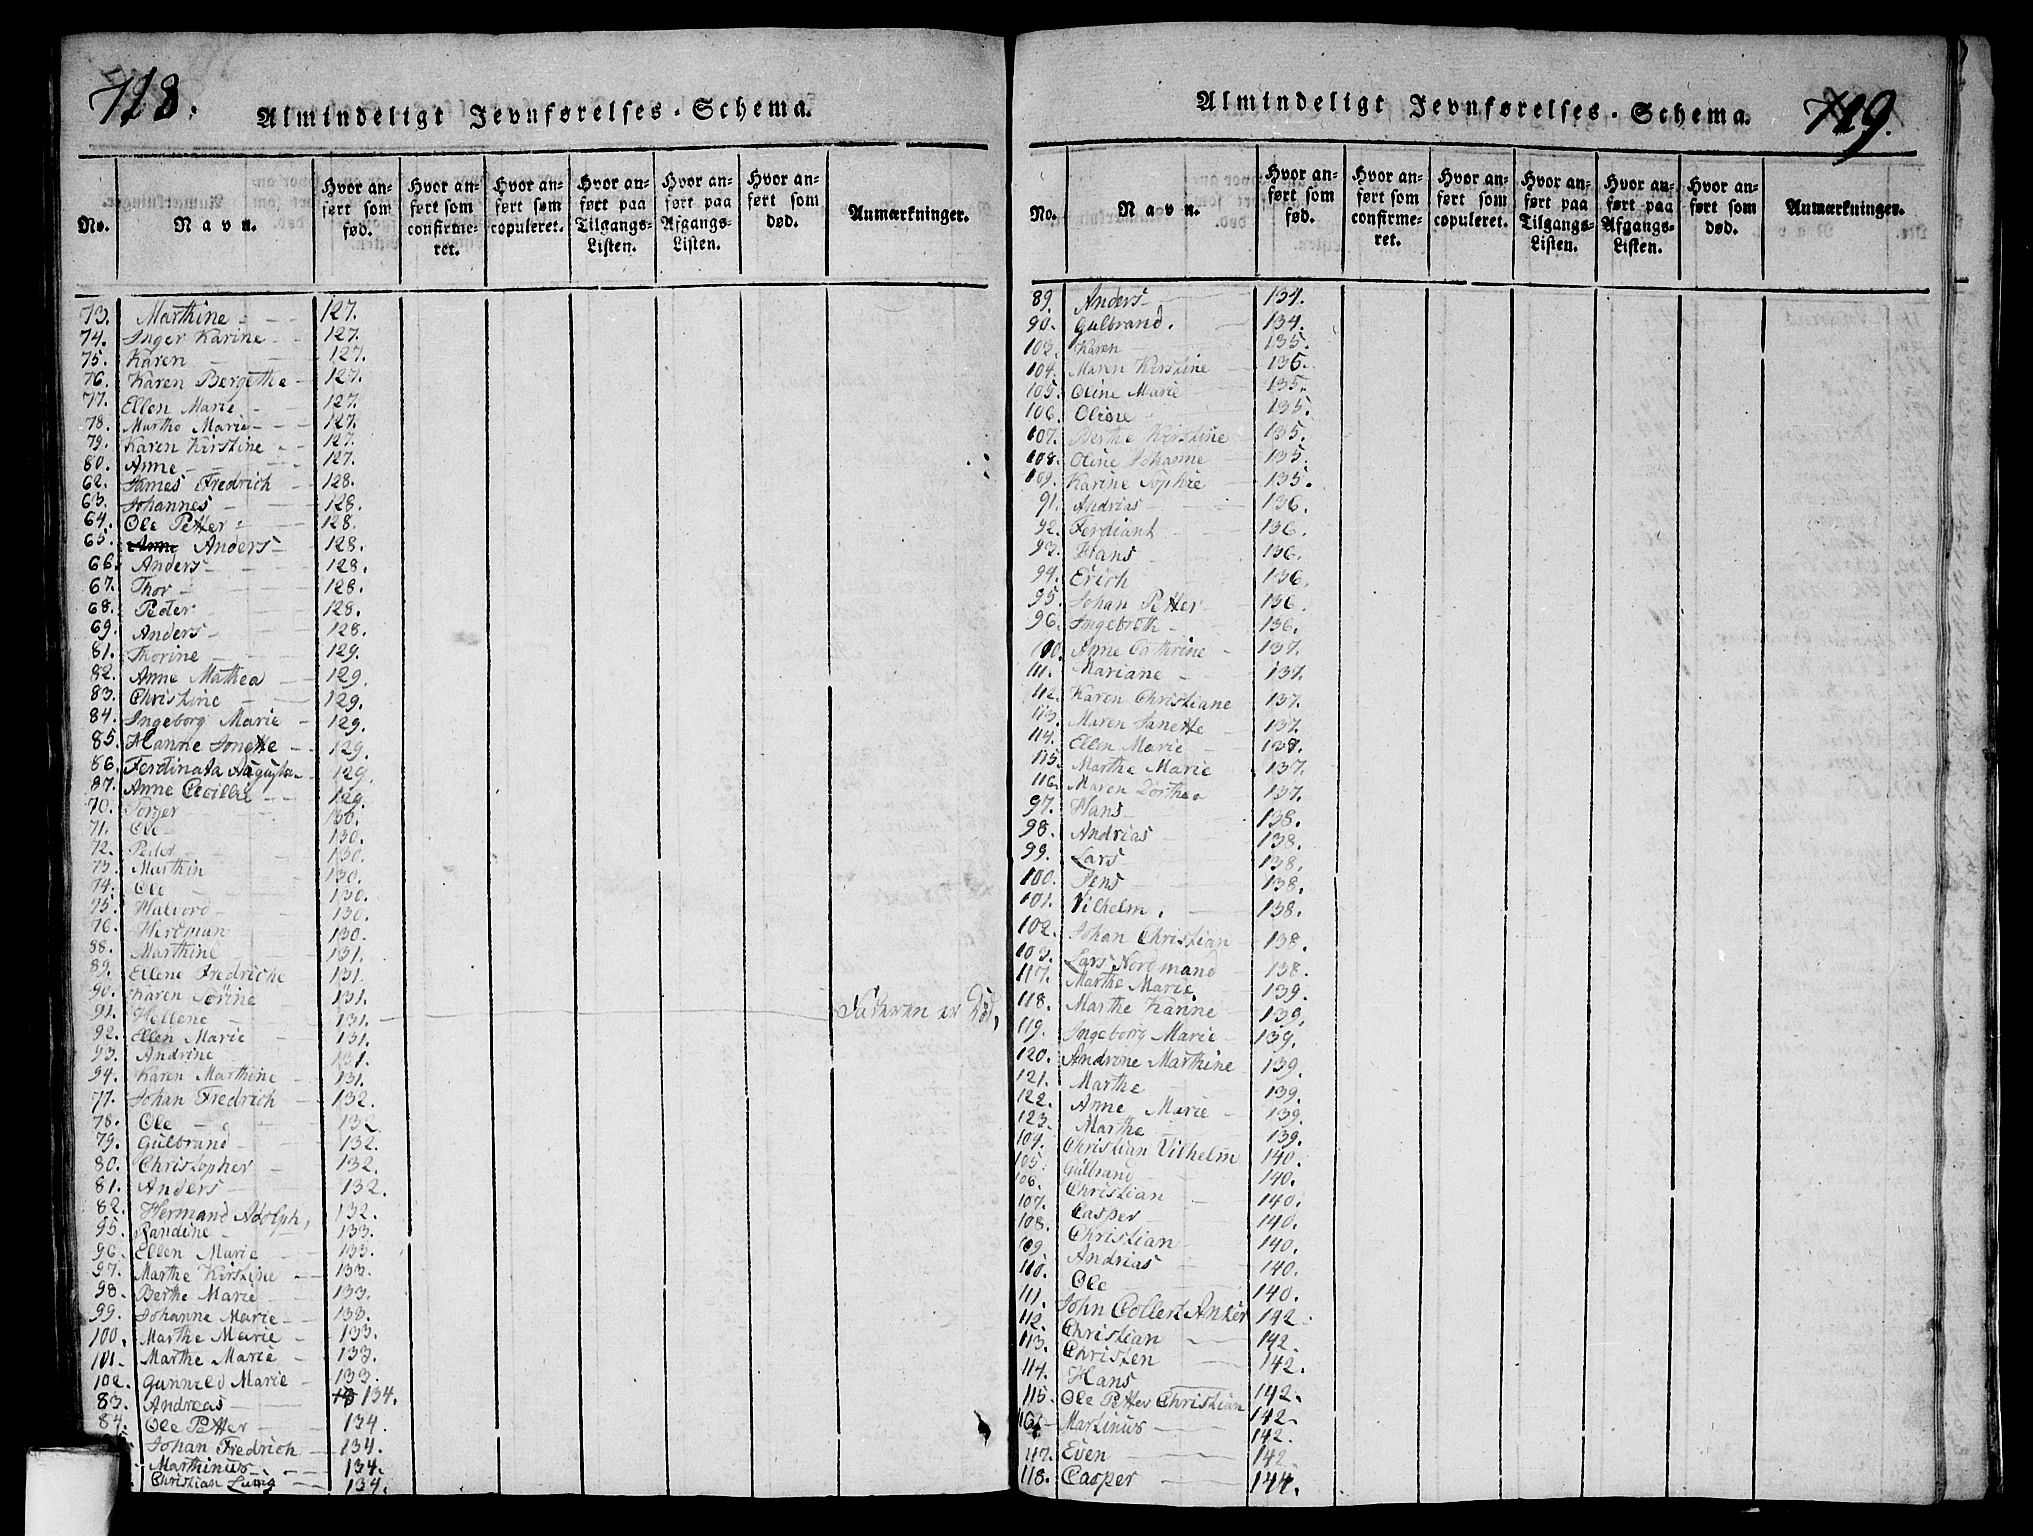 718.
Almindeligt Jevnførelses-Schema.
No.
Navn.
Hvor anført som fød.
Hvor anført som confirmeret.
Hvor anført som copuleret.
Hvor anført paa Tilgangs-Listen.
Hvor anført paa Afgangs-Listen.
Hvor anført som død.
Anmærkninger.
73. Marthine 127.
74. Inger Karine 127.
75. Karen 127.
76. Karen Bergethe 127.
77. Ellen Marie 127.
78. Marthe Marie 127.
79. Karen Kirstine 127.
80. Anne 127.
62. James Fredrich 128.
63. Johannes 128.
64. Ole Petter 128.
65. Anders 128.
66. Anders 128.
67. Thor 128.
68. Peder 128.
69. Anders 128.
81. Thorine 129.
82. Anne Mathea 129.
83. Christine 129.
84. Ingeborg Marie 129.
85. Hanne Jonette 129.
86. Ferdinata Augusta 129.
87. Anne Cecillie 129.
70. Torger 130.
71. Ole 130.
72. Peder 130.
73. Marthin 130.
74. Ole 130.
75. Halvord 130.
76. Herman 130.
88. Marthine 131.
89. Ellene Fredriche 131.
90. Karen Sørine 131.
91. Hellene 131. er Død,
92. Ellen Marie 131.
93. Andrine 131.
94. Karen Marthine 131.
77. Johan Fredrich 132.
78. Ole 132.
79. Gulbrand 132.
80. Christopher 132.
81. Anders 132.
82. Hermand Adolph, 132.
95. Randine 133.
96. Ellen Marie 133.
97. Marthe Kirstine 133.
98. Berthe Marie 133.
99. Johanne Marie 133.
100. Marthe Marie 133.
101. Marthe Marie 133.
102. Gunnild Marie 133.
83. Andreas 134.
84. Ole Petter 134.
Johan Fredrich 134.
Marthinus 134.
Christian 134.
719.
Almindeligt Jevnførelses-Schema.
No.
Navn.
Hvor anført som fød.
Hvor anført som confirmeret.
Hvor anført som copuleret.
Hvor anført paa Tilgangs-Listen.
Hvor anført paa Afgangs-Listen.
Hvor anført som død.
Anmærkninger.
89. Anders 134.
90. Gulbrand. 134.
103. Karen 135.
104. Maren Kirstine 135.
105. Oline Marie 135.
106. Oline 135.
107. Berthe Kirstine 135.
108. Oline Johanne 135.
109. Karine Sophie 135.
91. Andrias 136.
92. Ferdiant 136.
93. Hans 136.
94. Erich 136.
95. Johan Petter 136.
96. Ingebreth 136.
110. Anne Cathrine 137.
111. Mariane 137.
112. Karen Christiane 137.
113. Maren Janette 137.
114. Ellen Marie 137.
115. Marthe Marie 137.
116. Maren Dorthea 137.
97. Hans 138.
98. Andrias 138.
99. Lars 138.
100. Jens 138.
101. Vilhelm. 138.
102. Johan Christian 138.
103. Lars Nordmand 138.
117. Marthe Marie 139.
118. Marthe Karine 139.
119. Ingeborg Marie 139.
120. Andrine Marthine 139.
121. Marthe 139.
122. Anne Marie 139.
123. Marthe 139.
104. Christian Vilhelm 140.
105. Gulbrand 140.
106. Christian 140.
107. Casper 140.
108. Christian 140.
109. Andrias 140.
110. Ole 140.
111. John Collert Anker 142.
112. Christian 142.
113. Christen 142.
114. Hans 142.
115. Ole Petter Christian 142.
116. Martinus 142.
117. Even 142.
118. Casper 144.